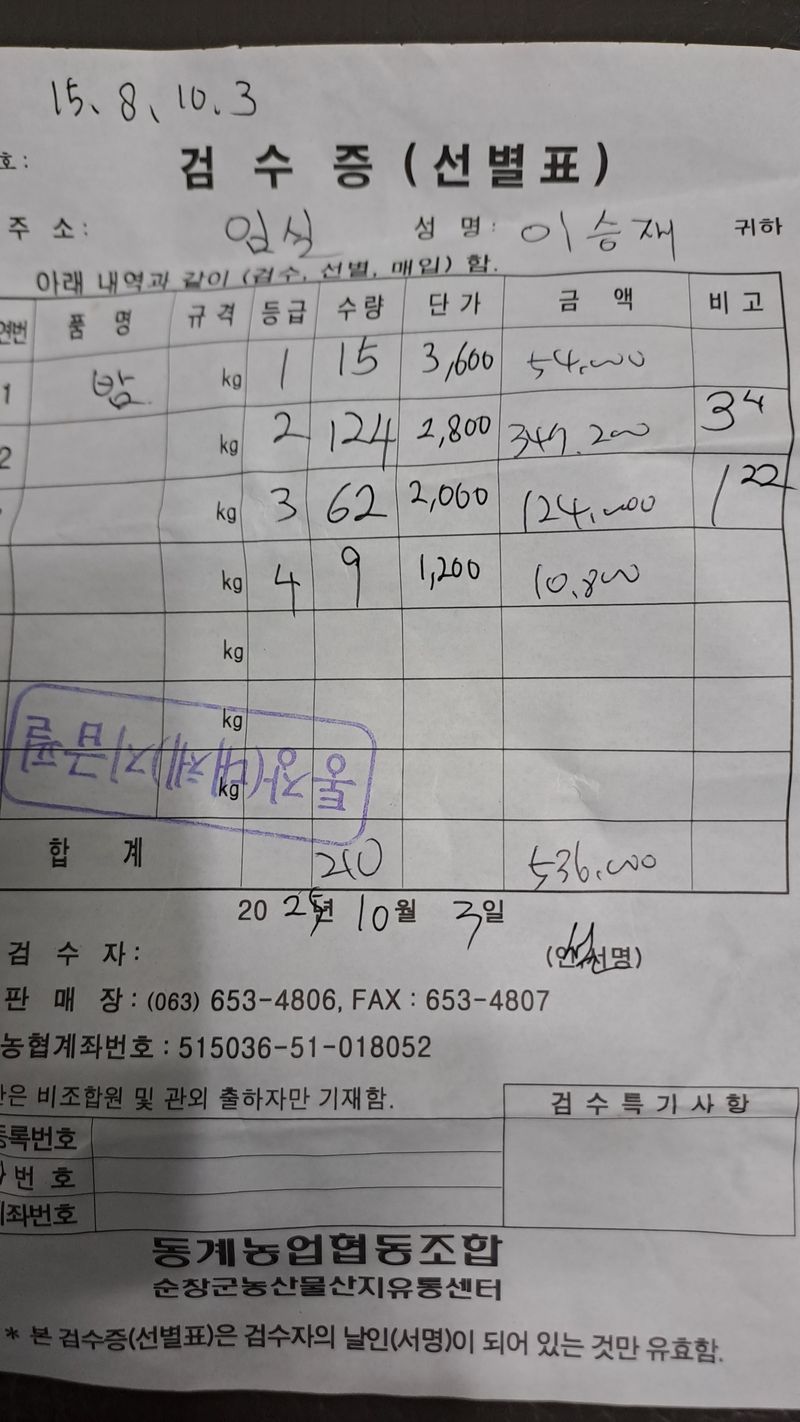 15、8、10.3
호:
검 수 증 (선별표)
주 소: 임실 성 명: 이승재 귀하
아래 내역과 같이 (검수, 선별, 매입) 함.
연번 품 명 규격 등급 수량 단가 금 액 비고
1 밤 kg 1 15 3,600 54,000
2 kg 2 124 2,800 347.200 3 4
kg 3 62 2,000 124,000 1 22
kg 4 9 1,200 10.800
kg
kg
kg
통장(대체)지급필
합 계 210 536,000
20 25년 10월 3일
검 수 자: (인,선명)
판 매 장: (063) 653-4806, FAX : 653-4807
농협계좌번호 : 515036-51-018052
란은 비조합원 및 관외 출하자만 기재함. 검수특기사항
등록번호
번 호
계좌번호
동계농업협동조합
순창군농산물산지유통센터
* 본 검수증(선별표)은 검수자의 날인(서명)이 되어 있는 것만 유효함.